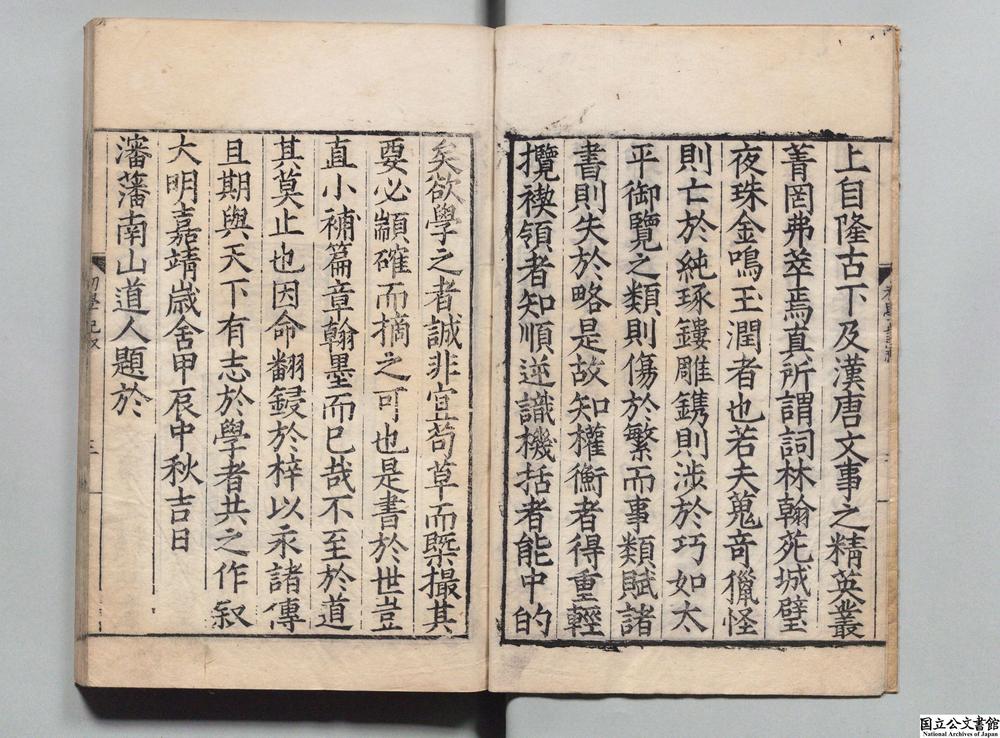 上自隆古下及漢唐文事之精英叢
菁罔弗萃焉真所謂詞林翰苑城璧
夜珠金鳴玉潤者也若夫蒐奇獵怪
則亡於純琢鏤雕鐫則涉於巧如太
平御覽之類則傷於繁而事類賦諸
書則失於略是故知權衡者得重輕
攬裌領者知順逆識機括者能中的
矣欲學之者誠非宜苟草而槩撮其
要必顓確而摘之可也是書於世豈
直小補篇章翰墨而已哉不至於道
其莫止也因命翻鋟於梓以永諸傳
且期與天下有志於學者共之作叙
大明嘉靖歲舍甲辰中秋吉日
瀋藩南山道人題於
初學記叙
国立公文書館
National Archives of Japan